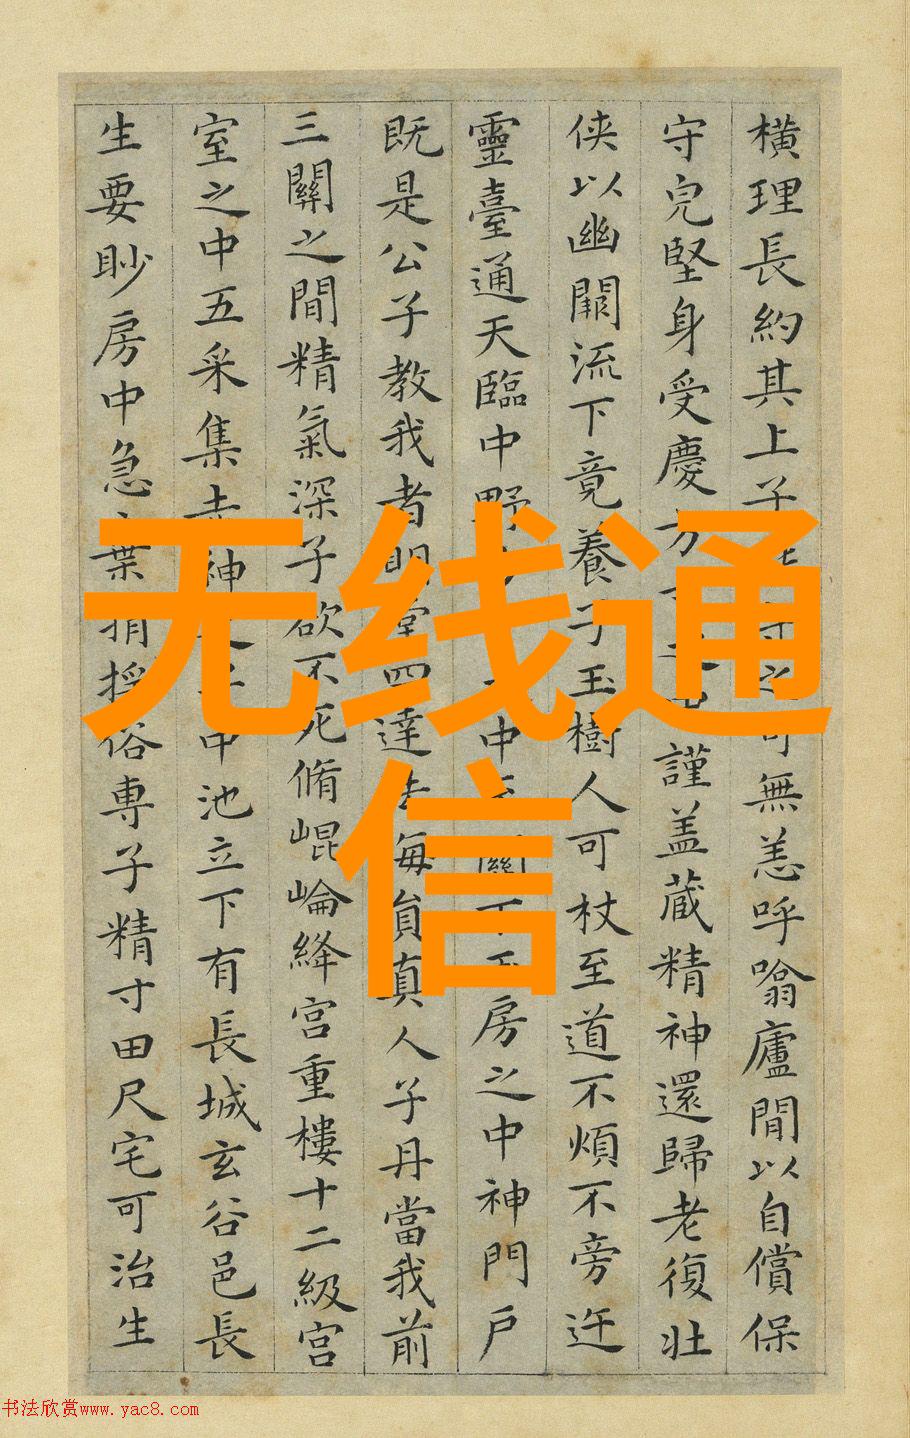 橫理長約其上子守之可無恙呼噏廬間以自償保
守皃堅身受慶方謹盖藏精神還歸老復壯
侠以幽闕流下竟養子玉樹人可杖至道不煩不旁迕
靈臺通天臨中野中關下玉房之中神門戶
既是公子教我者明堂四達法海員真人子丹當我前
三關之間精氣深子欲不死脩崐崘絳宮重樓十二級宮
室之中五采集赤神子中池立下有長城玄谷邑長
生要眇房中急棄捐俗專子精寸田尺宅可治生
无线通
信
书法欣赏www.yac8.com